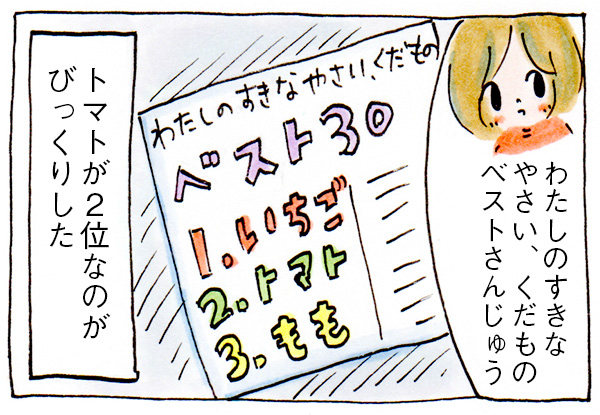 わたしのすきな
やさい、くだもの
ベストさんじゅう
わたしのすきなやさい、くだもの
ベスト30
1.いちご
2.トマト
3.もも
トマトが2位なのが
びっくりした